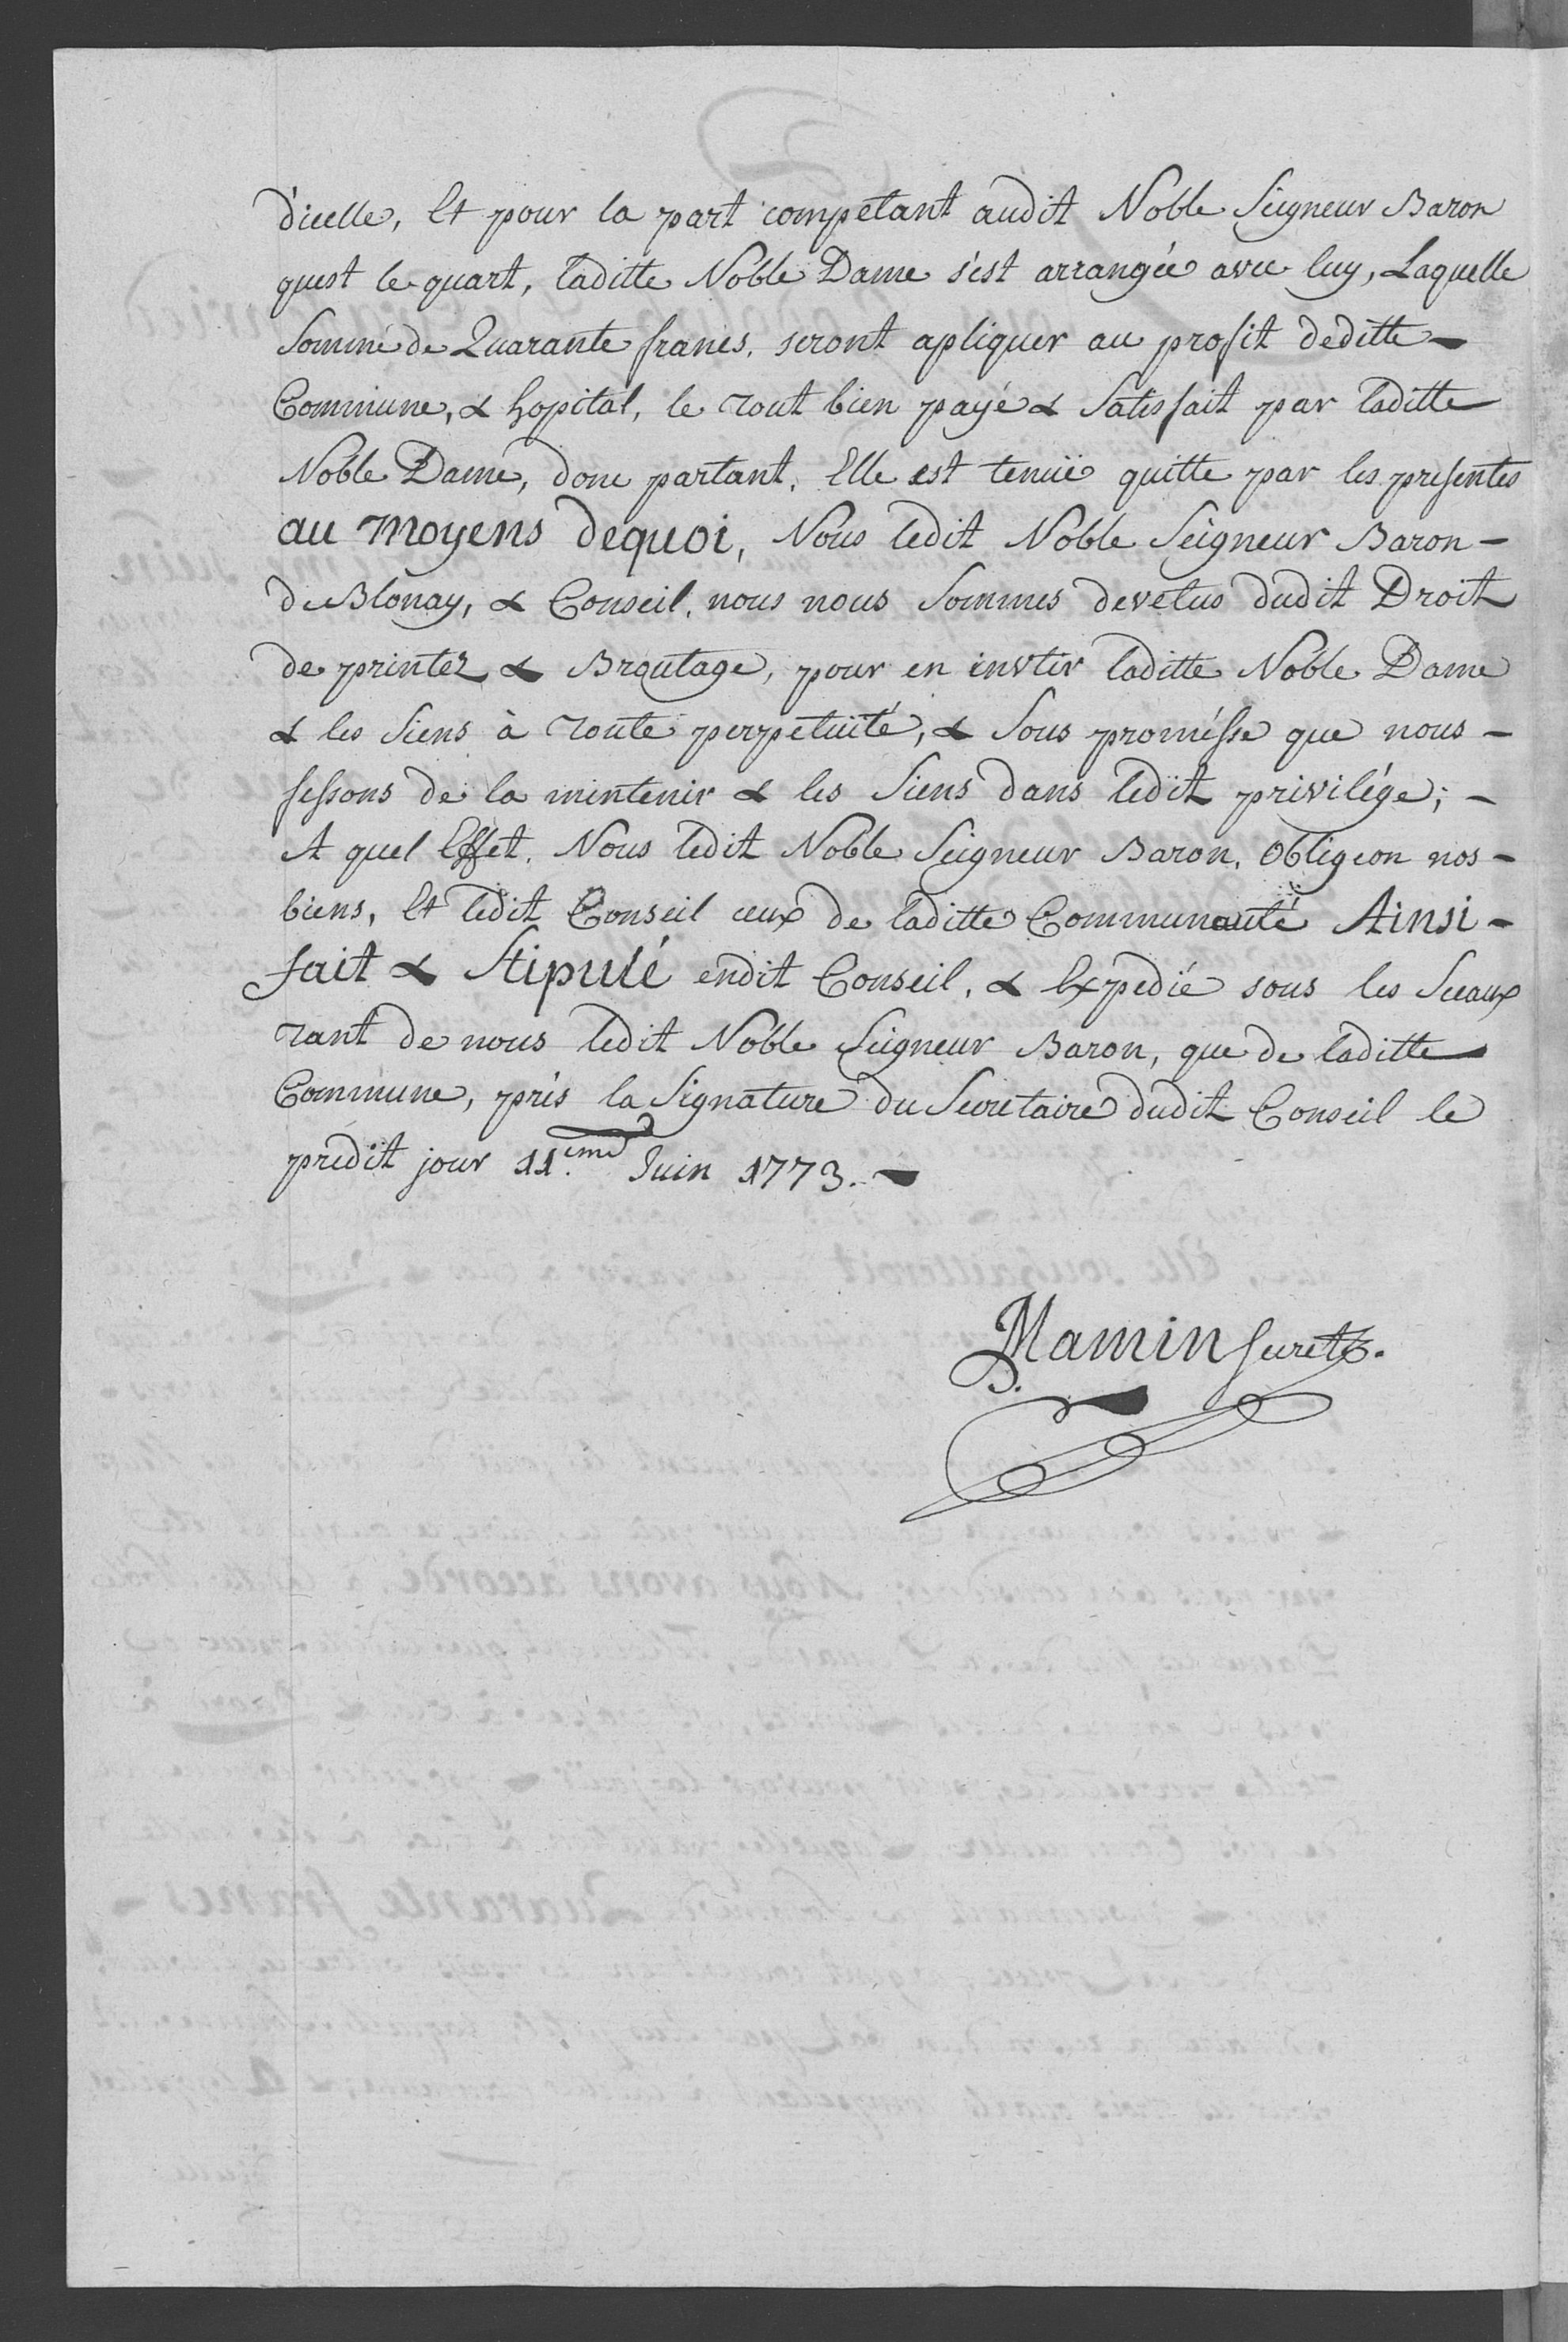 d'icelle, Et pour la part compétant audit Noble Seigneur Baron
quest le quart, laditte Noble Dame s'est arrangée avec luy, Laquelle
Somme de Quarante francs, seront apliquer au profit deditte -
Commune, & hopital, le tout bien payé & Satisfait par laditte
Noble Dame, donc partant, Elle est tenuë quitte par les presentes
au moyens dequoi, Nous ledit Noble Seigneur Baron -
de Blonay, & Conseil, nous nous Sommes devetus dudit Droit
de printez & Broutage, pour en invtir laditte Noble Dame
& les Siens à toute perpetuité, & Sous promésse que nous -
fessons de la mintenir & les Siens dans ledit privilége; -
A quel Effet, Nous ledit Noble Seigneur Baron, Obligeon nos -
biens, Et ledit Conseil ceux de laditte Communauté Ainsi -
fait & Stipulé endit Conseil, & Expedié sous les Sceaux
tant de nous ledit Noble Seigneur Baron, que de laditte
Commune, près la Signature du Secretaire dudit Conseil le
prédit jour 11.eme Juin 1773. -
Mamin Secrett.